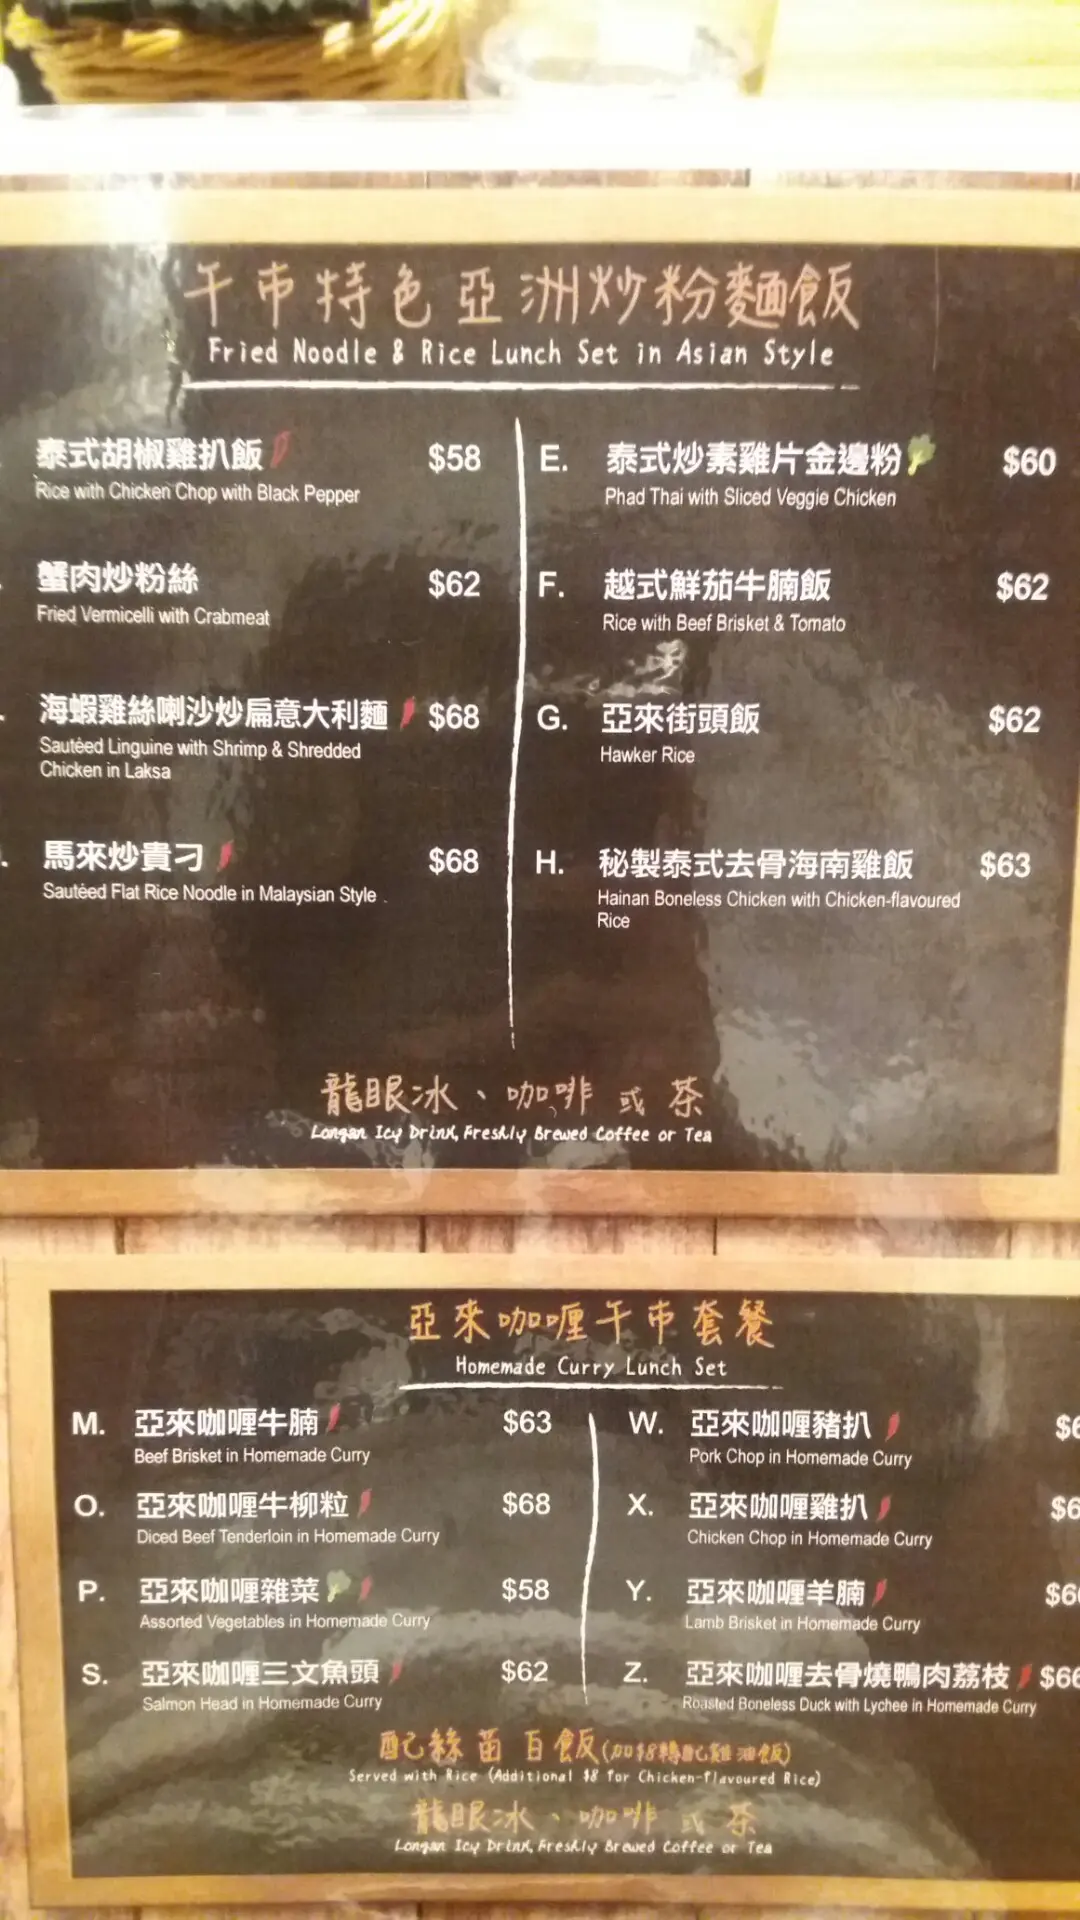 午市特色亞洲炒粉麵飯
Fried Noodle & Rice Lunch Set in Asian Style
泰式胡椒雞扒飯 $58
Rice with Chicken Chop with Black Pepper
蟹肉炒粉絲 $62
Fried Vermicelli with Crabmeat
海蝦雞絲喇沙炒扁意大利麵 $68
Sautéed Linguine with Shrimp & Shredded
Chicken in Laksa
馬來炒貴刁 $68
Sautéed Flat Rice Noodle in Malaysian Style
E. 泰式炒素雞片金邊粉 $60
Phad Thai with Sliced Veggie Chicken
F. 越式鮮茄牛腩飯 $62
Rice with Beef Brisket & Tomato
G. 亞來街頭飯 $62
Hawker Rice
H. 秘製泰式去骨海南雞飯 $63
Hainan Boneless Chicken with Chicken-flavoured
Rice
龍眼冰、咖啡 或 茶
Longan Icy Drink, Freshly Brewed Coffee or Tea
亞來咖喱午市套餐
Homemade Curry Lunch Set
M. 亞來咖喱牛腩 $63
Beef Brisket in Homemade Curry
O. 亞來咖喱牛柳粒 $68
Diced Beef Tenderloin in Homemade Curry
P. 亞來咖喱雜菜 $58
Assorted Vegetables in Homemade Curry
S. 亞來咖喱三文魚頭 $62
Salmon Head in Homemade Curry
W. 亞來咖喱豬扒
Pork Chop in Homemade Curry
X. 亞來咖喱雞扒
Chicken Chop in Homemade Curry
Y. 亞來咖喱羊腩
Lamb Brisket in Homemade Curry
Z. 亞來咖喱去骨燒鴨肉荔枝 $66
Roasted Boneless Duck with Lychee in Homemade Curry
配絲苗白飯(加$8轉配雞油飯)
Served with Rice (Additional $8 for Chicken-flavoured Rice)
龍眼冰、咖啡 或 茶
Longan Icy Drink, Freshly Brewed Coffee or Tea